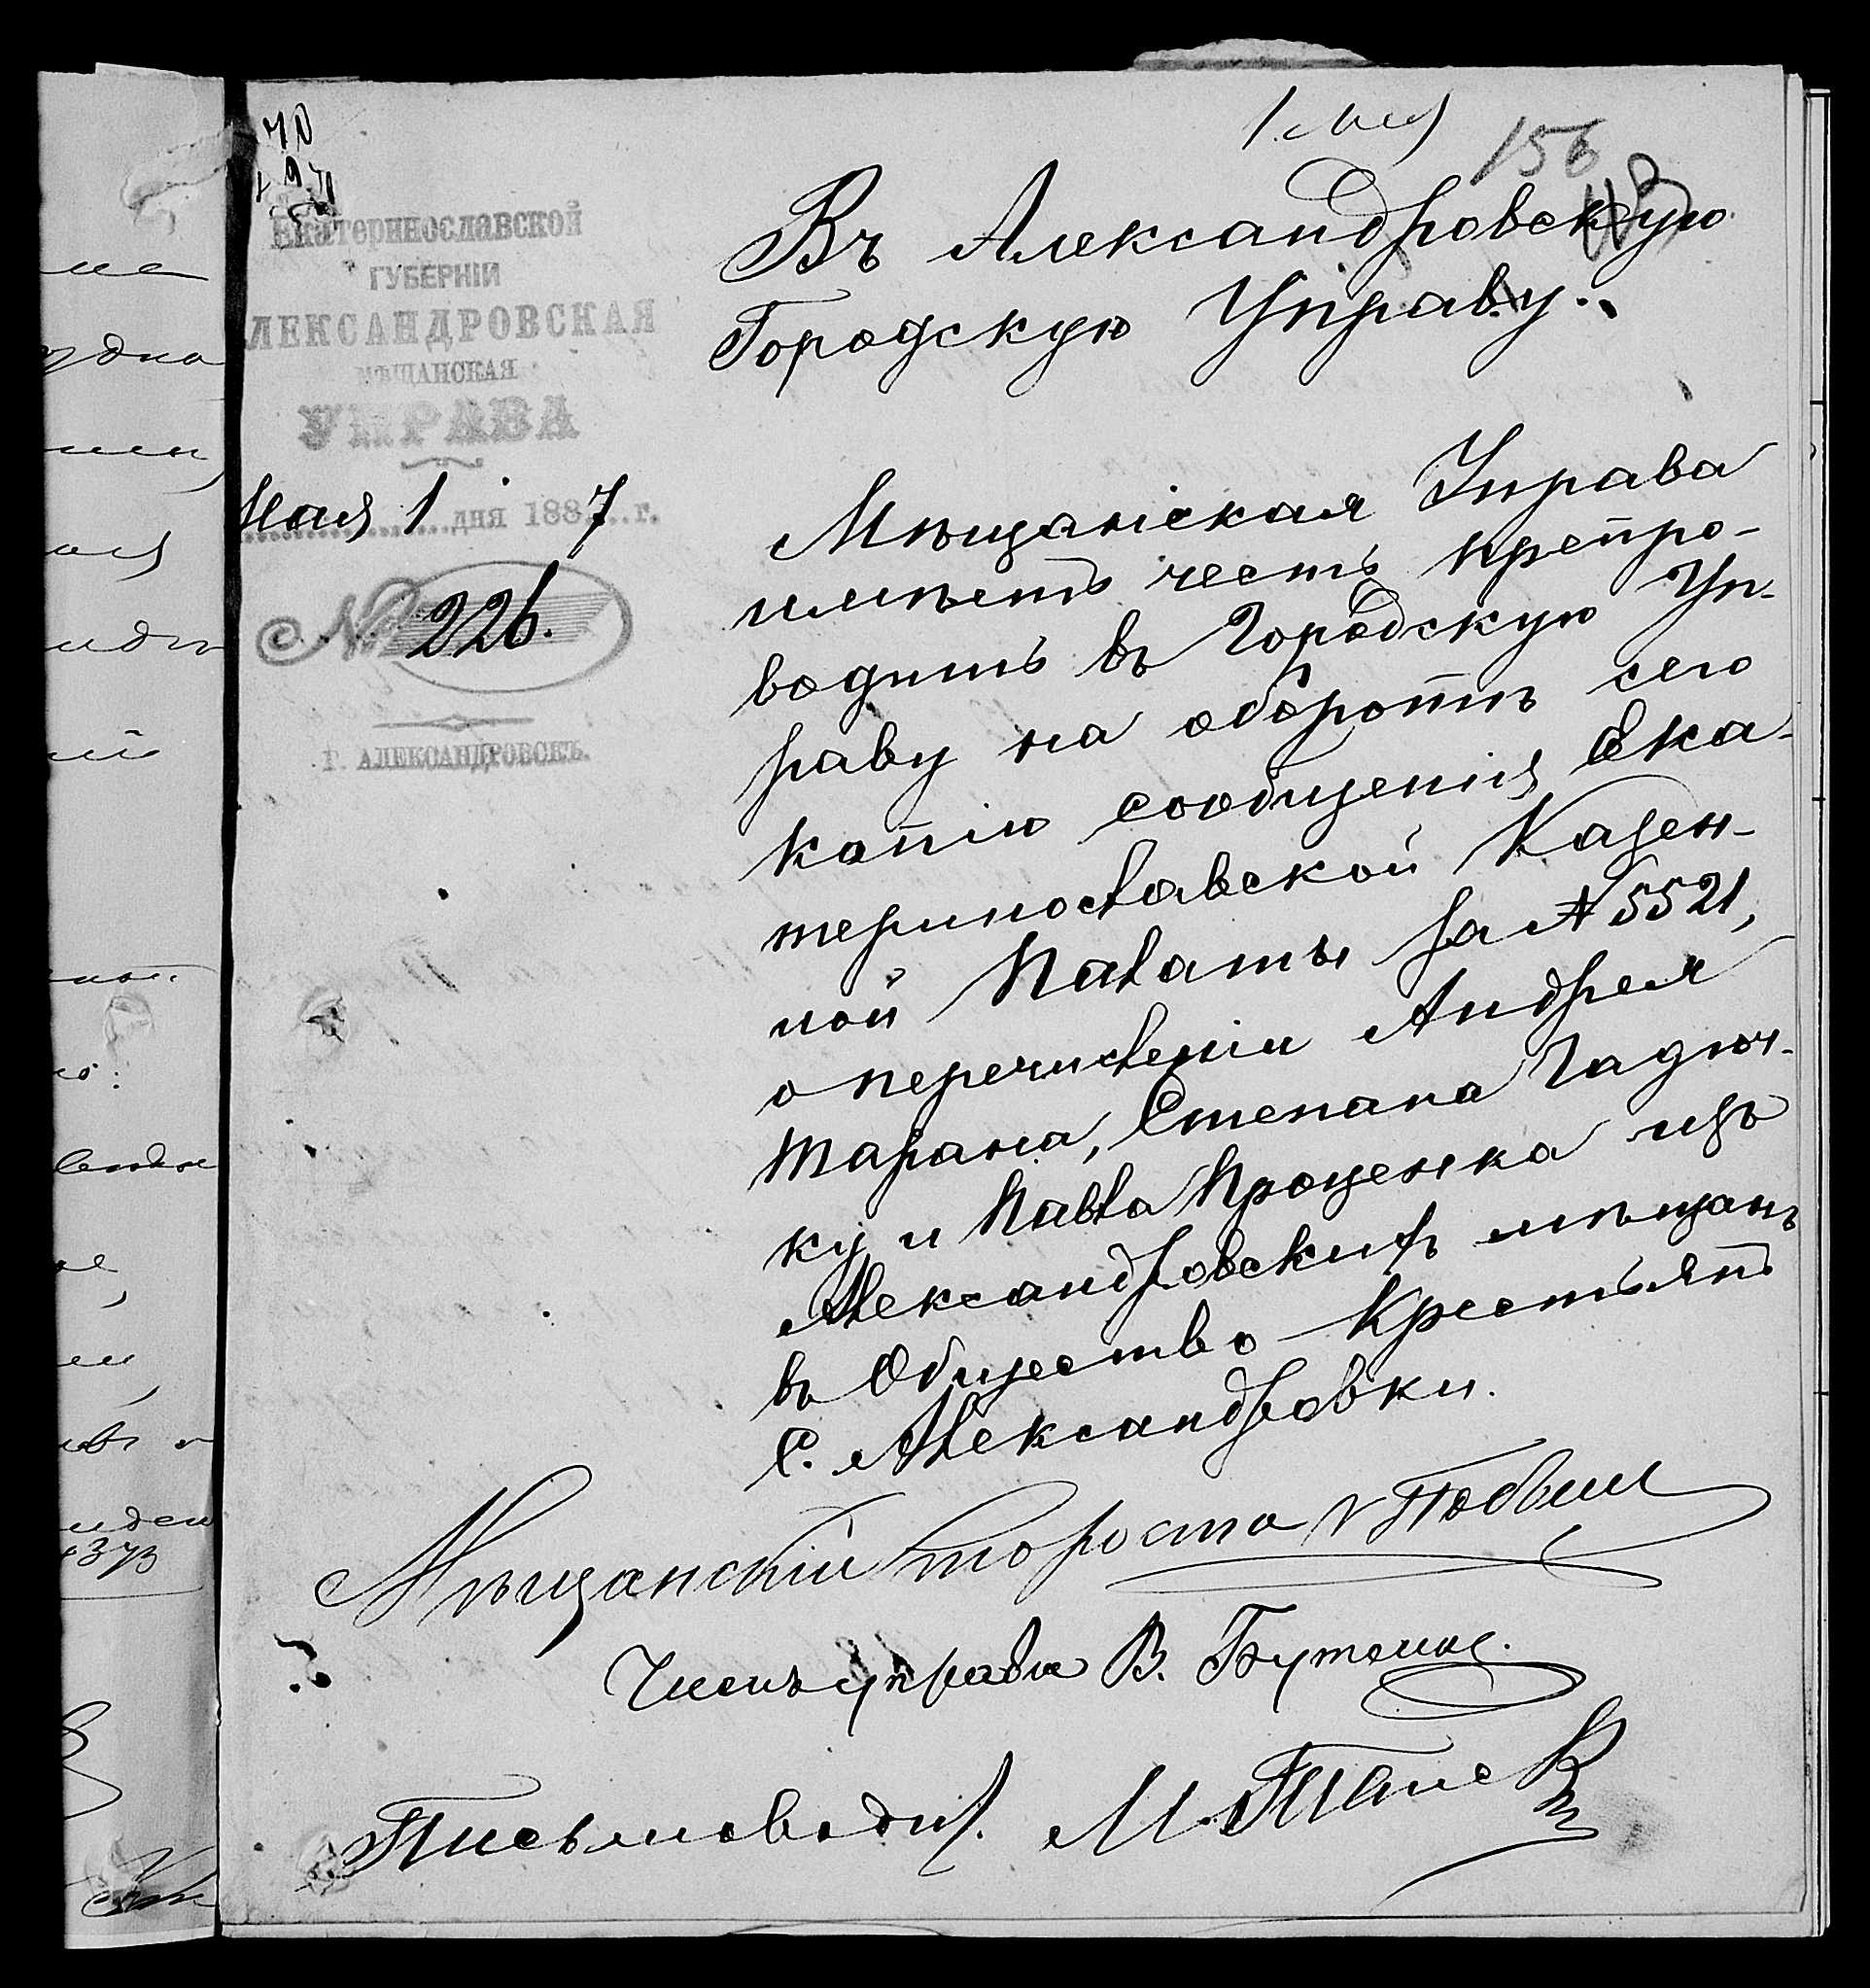 1 Мая
156
Екатеринославской
ГУБЕРНІИ
АЛЕКСАНДРОВСКАЯ
МѢЩАНСКАЯ
УПРАВА
Мая 1 дня 1887 г.
№ 226.
Г. АЛЕКСАНДРОВСКЪ.
Въ Александровскую
Городскую Управу.
Мѣщанская Управа
имѣетъ честь препро-
водить въ Городскую Уп-
раву на оборотѣ сего
копію сообщенія Ека-
теринославской Казен-
ной Палаты за № 5521,
о перечисленіи Андрея
Тарана, Степана Гадюч-
ку и Павла Проценка изъ
Александровскихъ мѣщанъ
въ Общество Крестьянъ
С. Александровки.
Мѣщанскій Староста
Членъ управы В. Бутенко.
Письмоводит. М.